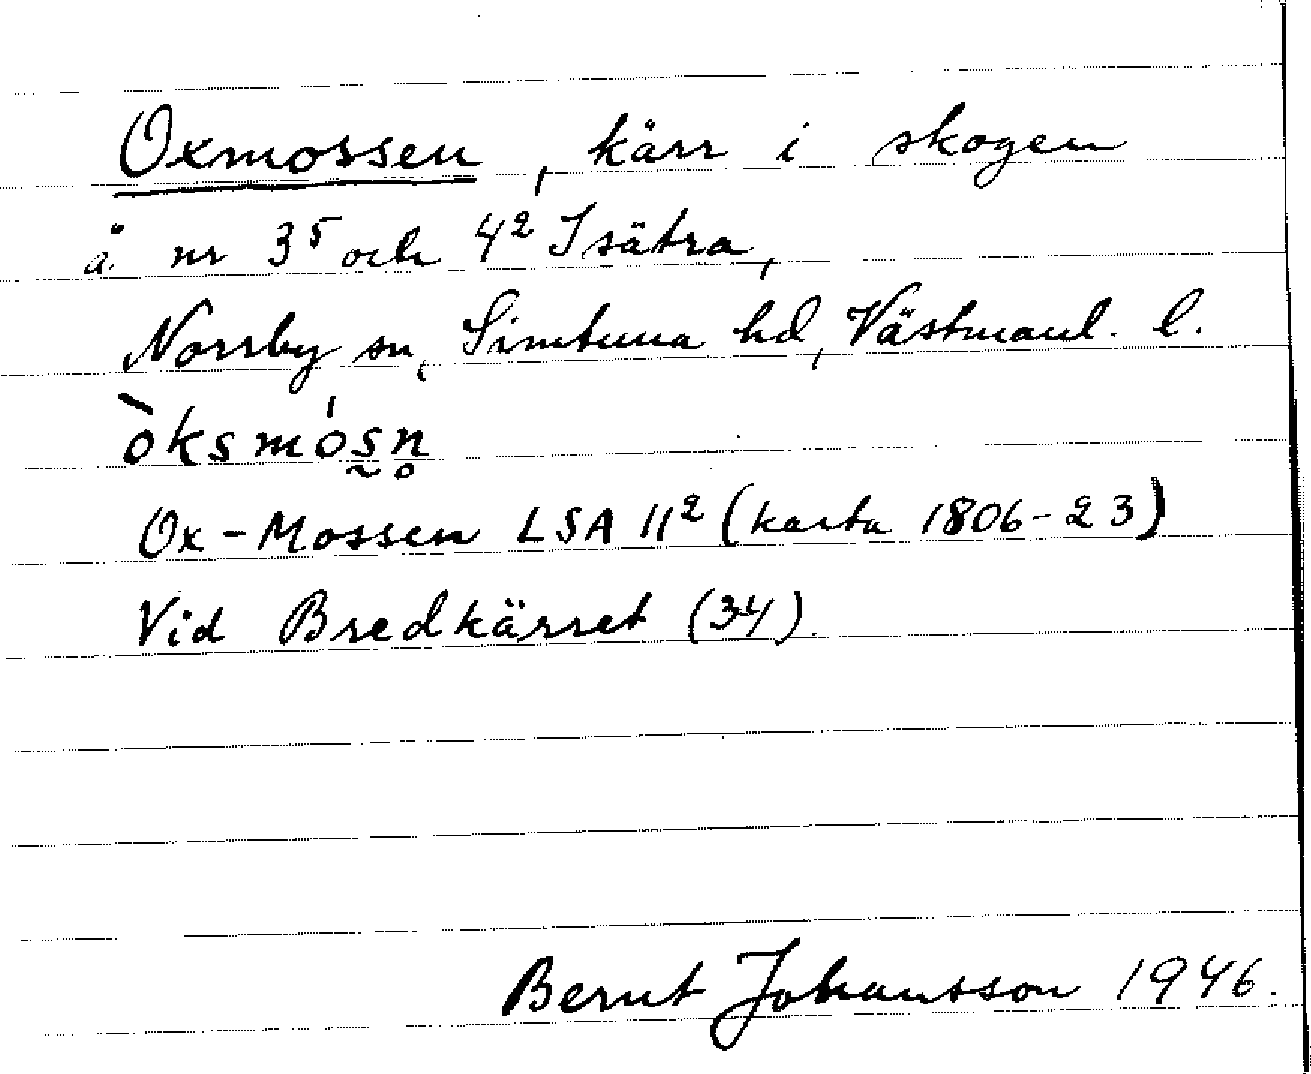 Oxmossen, kärr i skogen
å nr 3⁵ och 4² Isätra,
Norrby sn, Simtuna hd, Västmanl. l.
òksmós̰n̥
Ox-Mossen LSA 11² (karta 1806-23)
Vid Bredkärret (34).
Bernt Johansson 1946.